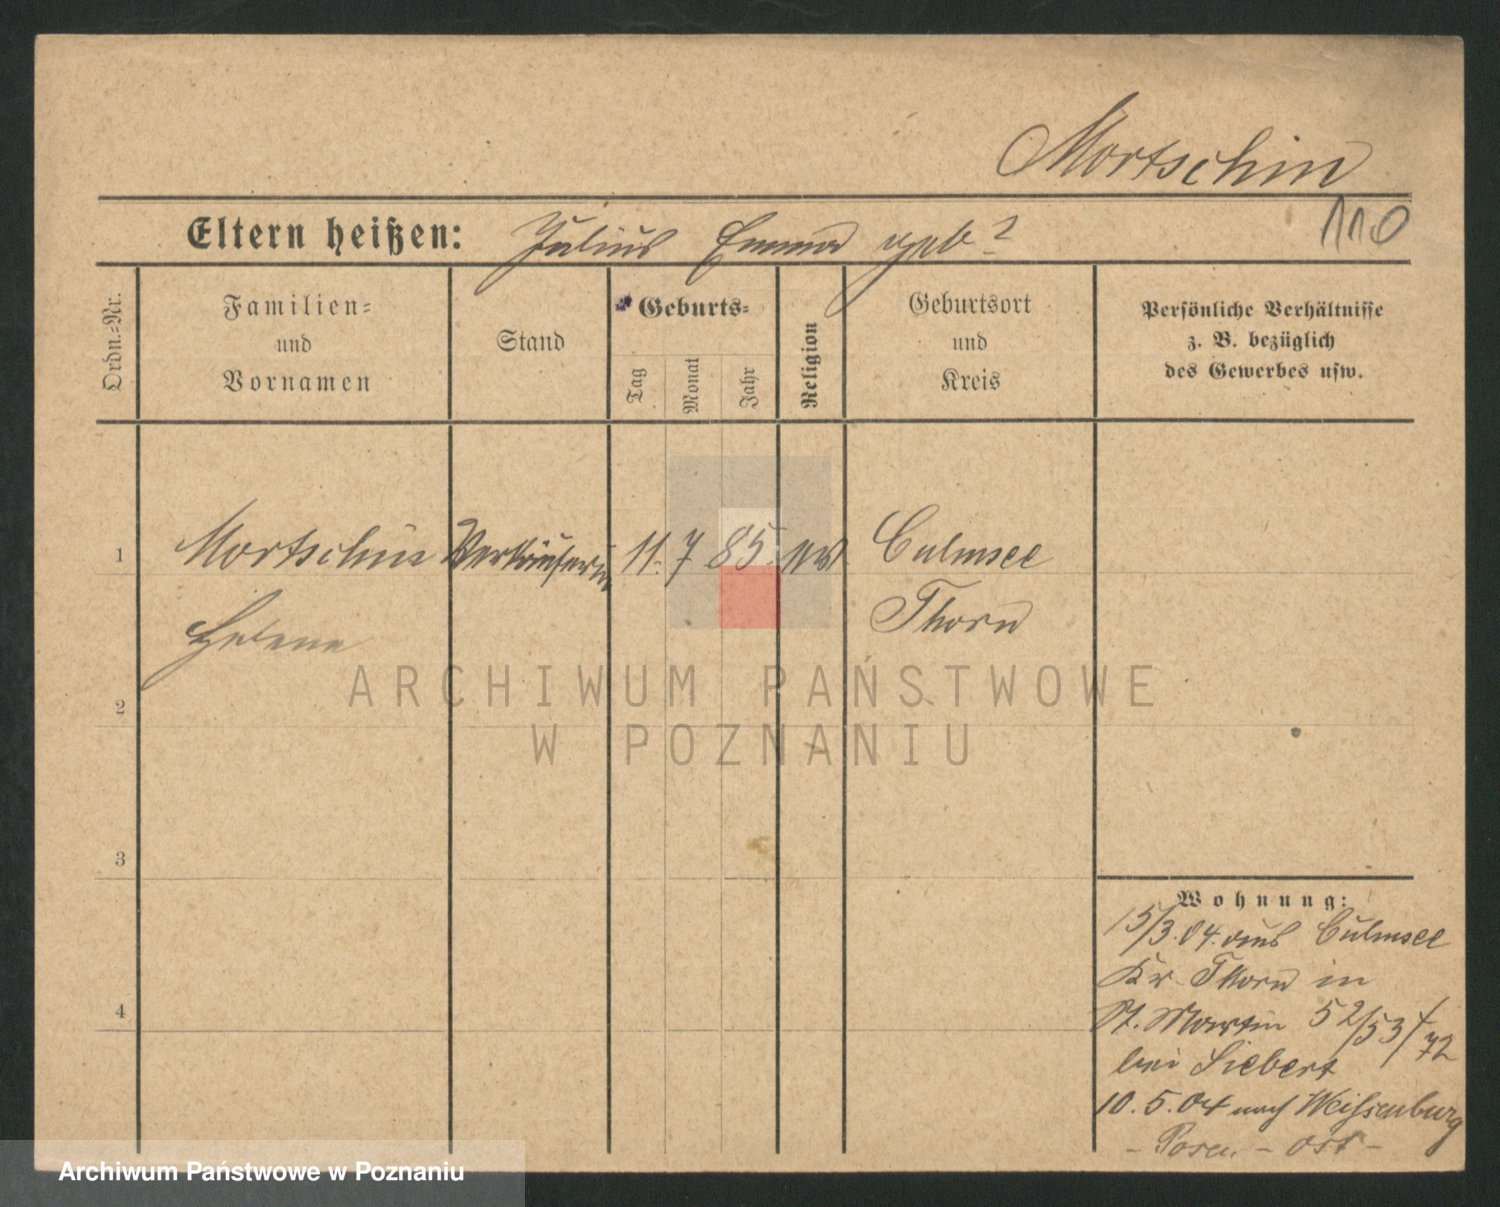 Mortschin
110
Eltern heißen: Julius Emma geb ?
Ordn.=Nr.
Familien=
und
Vornamen
Stand
Geburts=
Tag
Monat
Jahr
Religion
Geburtsort
und
Kreis
Persönliche Verhältnisse
z. B. bezüglich
des Gewerbes usw.
1 Mortschin Verkäuferin 11. 7 85. ev. Culmsee
Helene Thorn
2
3
4
Wohnung:
15/3.04. aus Culmsee
Kr Thorn in
St. Martin 52/53 / 72
bei Siebert
10. 5. 04 nach Weißenburg
- Posen - Ost -
ARCHIWUM PAŃSTWOWE
W POZNANIU
Archiwum Państwowe w Poznaniu